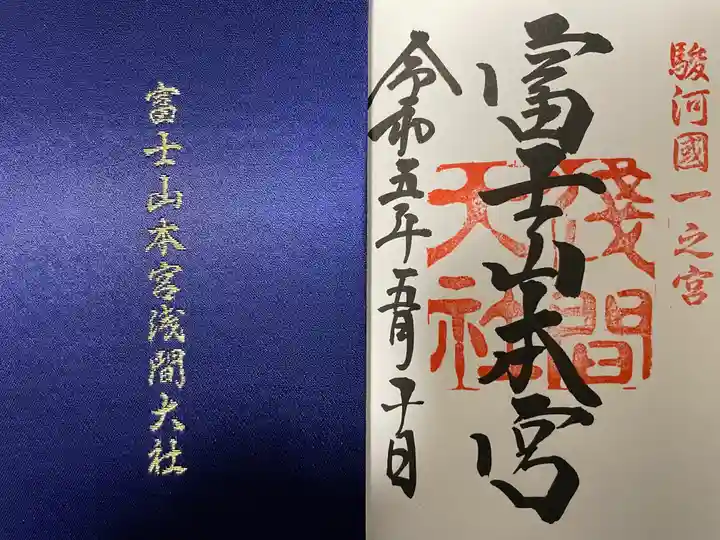 富士山本宮浅間大社
駿河國一之宮
富士山本宮
淺間大社
令和五年五月十日